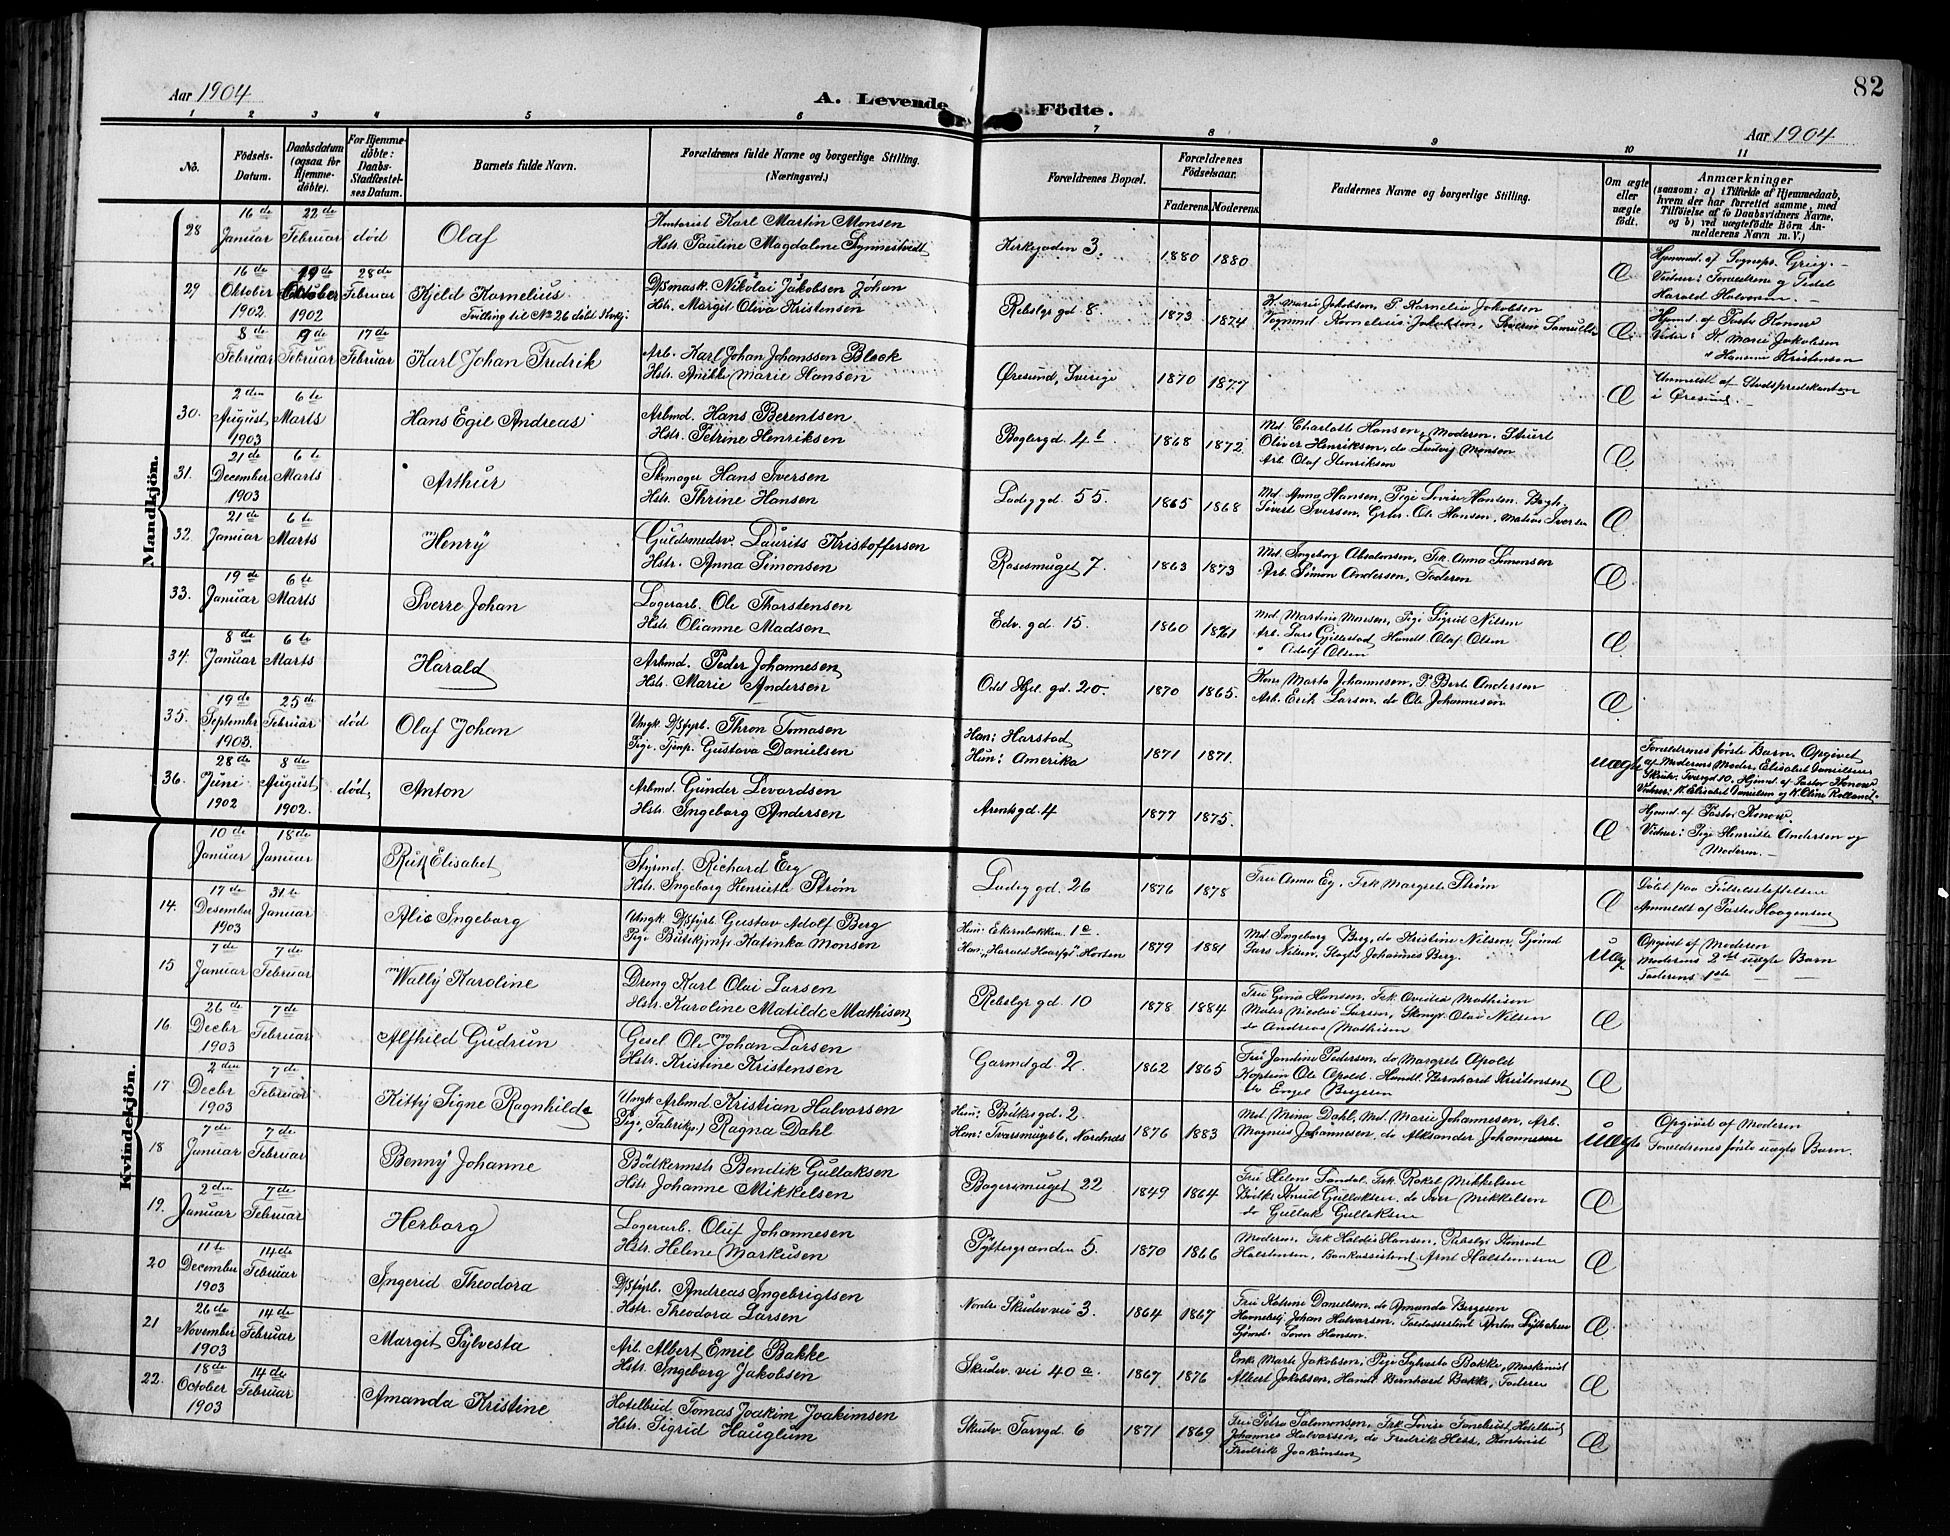 82
Aar 1904
A. Levende Födte.
Aar 1904
1 2 3 4 5 6 7 8 9 10 11
No.
Födsels-Datum.
Daabsdatum (ogsaa for Hjemmedöbte).
For Hjemmedöbte: Daabs-Stadfæstelses Datum.
Barnets fulde Navn.
Forældrenes fulde Navne og borgerlige Stilling. (Næringsvei.)
Forældrenes Bopæl.
Forældrenes Födselsaar.
Faderens. Moderens.
Faddernes Navne og borgerlige Stilling.
Om ægte eller uægte födt.
Anmærkninger
(saasom: a) i Tilfælde af Hjemmedaab,
hvem der har forrettet samme, med
Tilföielse af to Daabsvidners Navne,
og b) ved uægtefödte Börn Anmelderens Navn m. V.)
Mandkjön.
28 16de Januar 22de Februar død Olaf
Kontorist Karl Martin Monsen
Hstr. Pauline Magdalene Synnestvedt
Kirkegaden 3. 1880 1880 Æ
Hjemmd. af Sognepr. Grieg.
29 16de Oktober 1902 19de Oktober 1902 28de Februar Kjeld Kornelius
Tvilling til No 26
D/Smask. Nikolai Jakobsen Johan
Hstr. Margit Oliva Kristensen
Rebslgr gd 8. 1873 1874
K. Marie Jakobsen, P. Kornelia Jakobsen
Æ
Hjemd. af Pastor Konow
Vidner: K. Marie Jakobsen
" Hansine Kristensen
8de Februar 9de Februar 17de Februar Karl Johan Fredrik
Arb. Karl Johan Johansson Block
Hstr. Anikke Marie Hansen
Øresund, Sverige 1870 1877 Æ
Anmeldt af Stadspredikanten
i Øresund.
30. 2den August 1903 6te Marts Hans Egil Andreas
Arbmd. Hans Berentsen
Hstr. Petrine Henriksen
1868 1872
Md. Charlotte Hansen, Moderen, Stuert
Oliver Henriksen, do Ludvig Monsen
Arb. Olaf Henriksen
Æ
31. 21de December 1903 6te Marts Arthur
Skomager Hans Iversen
Hstr. Thrine Hansen
Ladeg gd 55. 1865 1868
Md. Anna Hansen, Pige Lovise Hansen
Sivert Iversen, Ole Hansen, Matias Iversen
Æ
32. 21de Januar 6te Marts Henry
Guldsmedsv. Laurits Kristoffersen
Hstr. Anna Simonsen
Rosesmuget 7. 1863 1873
Md. Ingeborg Absalonsen, Frk Anna Simonsen
Arb. Simon Andersen, Faderen
Æ
33. 19de Januar 6te Marts Sverre Johan
Lagerarb. Ole Thorstensen
Hstr. Olianne Madsen
Edv. gd. 15. 1860 1861
Md. Martine Monsen, Pige Sigrid Nilsen
Arb. Lars Gjillestad, Handl. Olaf Olsen
" Adolf Olsen
Æ
34. 8de Januar 6te Marts Harald
Arbmd. Peder Johannesen
Hstr. Marie Andersen
Odd Hjel. gd. 20. 1870 1865.
Kone Marta Johannesen, P. Berta Andersen
Arb. Erik Larsen, do Ole Johannesen
Æ
35. 19de September 1903. 25de Februar død Olaf Johan
Ungk. D/Sfyrb. Thron Tomasen
Pige, Gustava Danielsen
Han: Harstad
Hun: Amerika
1871 1871. uægte
Forældrenes første Barn. Opgivet
af Moderens Moder, Elisabet Danielsen
Hjemd. af Pastor Konow
36. 28de Juni 1902 8de August 1902. død Anton
Arbmd. Gunder Levardsen
Hstr. Ingeborg Andersen
Arentsgd. 4 1877 1875. Æ
Hjemd. af Pastor Konow.
Vidner: Pige Henriette Andersen og
Moderen.
Kvindekjön.
10de Januar 18de Januar Rut Elisabet
Styrmd. Richard Eeg
Hstr. Ingeborg Henriette Strøm
Ladeg gd. 26 1876 1878
Fru Anna Eg, Frk Margrete Strøm
Æ
Døbt paa Fødselsstiftelsen
Anmeldt af Pastor Haagensen
14. 17de Desember 1903 31te Januar Alis Ingeborg
Ungk. D/Sfyrb. Gustav Adolf Berg
Pige Butikjmfr Katinka Monsen
Hun: Ekernbakken 1a
Han: "Harald Haarfgr" Horten
1879 1881
Md Ingeborg Berg, do Kristine Nilsen, Sjømd
Lars Nilsen, Johannes Berg.
Uæg.
Opgivet af Moderen
Moderens 2det uægte Barn
Faderens 1ste
15 7de Januar 7de Februar Wally Karoline
Dreng Karl Olai Larsen
Hstr. Karoline Matilde Mathisen
Rebslgr gd. 10 1878 1884
Fru Gina Hansen, Frk. Ovidia Mathisen
Maler Nicolai Larsen, Olai Nilsen
do Andreas Mathisen
Æ
16 26de Decbr 1903 7de Februar Alfhild Gudrun
Gesel Ole Johan Larsen
Hstr. Kristine Kristensen
Garmdgd 2. 1862 1865
Fru Jandine Pedersen, do Margrete Apold
Kaptein Ole Apold. Handl. Bernhard Kristensen
do Engel Bergesen
Æ
17 2den Decbr 1903 7de Februar Kitty Signe Ragnhilde
Ungk Arbmd. Kristian Halvorsen
Pige, Ragna Dahl
Hun: Bødkergd. 2
Han: Tverrsmuget 6, Nordnæs
1876 1883
Md. Mina Dahl, Md. Marie Johannesen, Arb.
Magnus Johannesen, do Aleksander Johannesen
Uægte
Opgivet af Moderen
Forældrenes første uægte Barn.
18 7de Januar 7de Februar Benny Johanne
Bödkermstr Bendik Gullaksen
Hstr Johanne Mikkelsen
Bagersmuget 22 1849 1864
Fru Helene Sandal, Frk Rakel Mikkelsen
Gullaksen, do Iver Mikkelsen
do Gullak Gullaksen
Æ
19. 2den Januar 7de Februar Herborg
Lagerarb. Oluf Johannesen
Hstr. Helene Markusen
Pyttergrænden 5. 1870 1866
Moderen, Frk Haldis Hansen, Konrad
Halstensen, Bankassistent Arnt Halstensen
Æ
20 11te December 1903 14de Februar Ingerid Theodora
D/Sfyrb. Andreas Ingebrigtsen
Hstr. Theodora Larsen
Nordre Skudevvei 3. 1864 1867
Fru Katrine Danielsen, do Amanda Bergesen
Johan Halvorsen,
Sjømd. Søren Hansen.
Æ
21 26de November 1903 14de Februar Margit Sylvesta
Arb. Albert Emil Bakke
Hstr. Ingeborg Jakobsen
Skudev. vei 40 a. 1867. 1876
Enke Marte Jakobsen, Pige Sylvesta Bakke, Maskinist
Albert Jakobsen, Handl. Bernhard Bakke, Faderen
Æ
22. 18de October 1903 14de Februar Amanda Kristine
Hotelbud Tomas Joakim Joakimsen
Hstr. Sigrid Hauglum
Skudev. Torvgd. 6 1871 1869
Fru Petra Salomonsen, Frk Lovise Hotelbud
Johannes Halvorsen, do Fredrik Hess, Kontorist
Fredrik Joakimsen
Æ